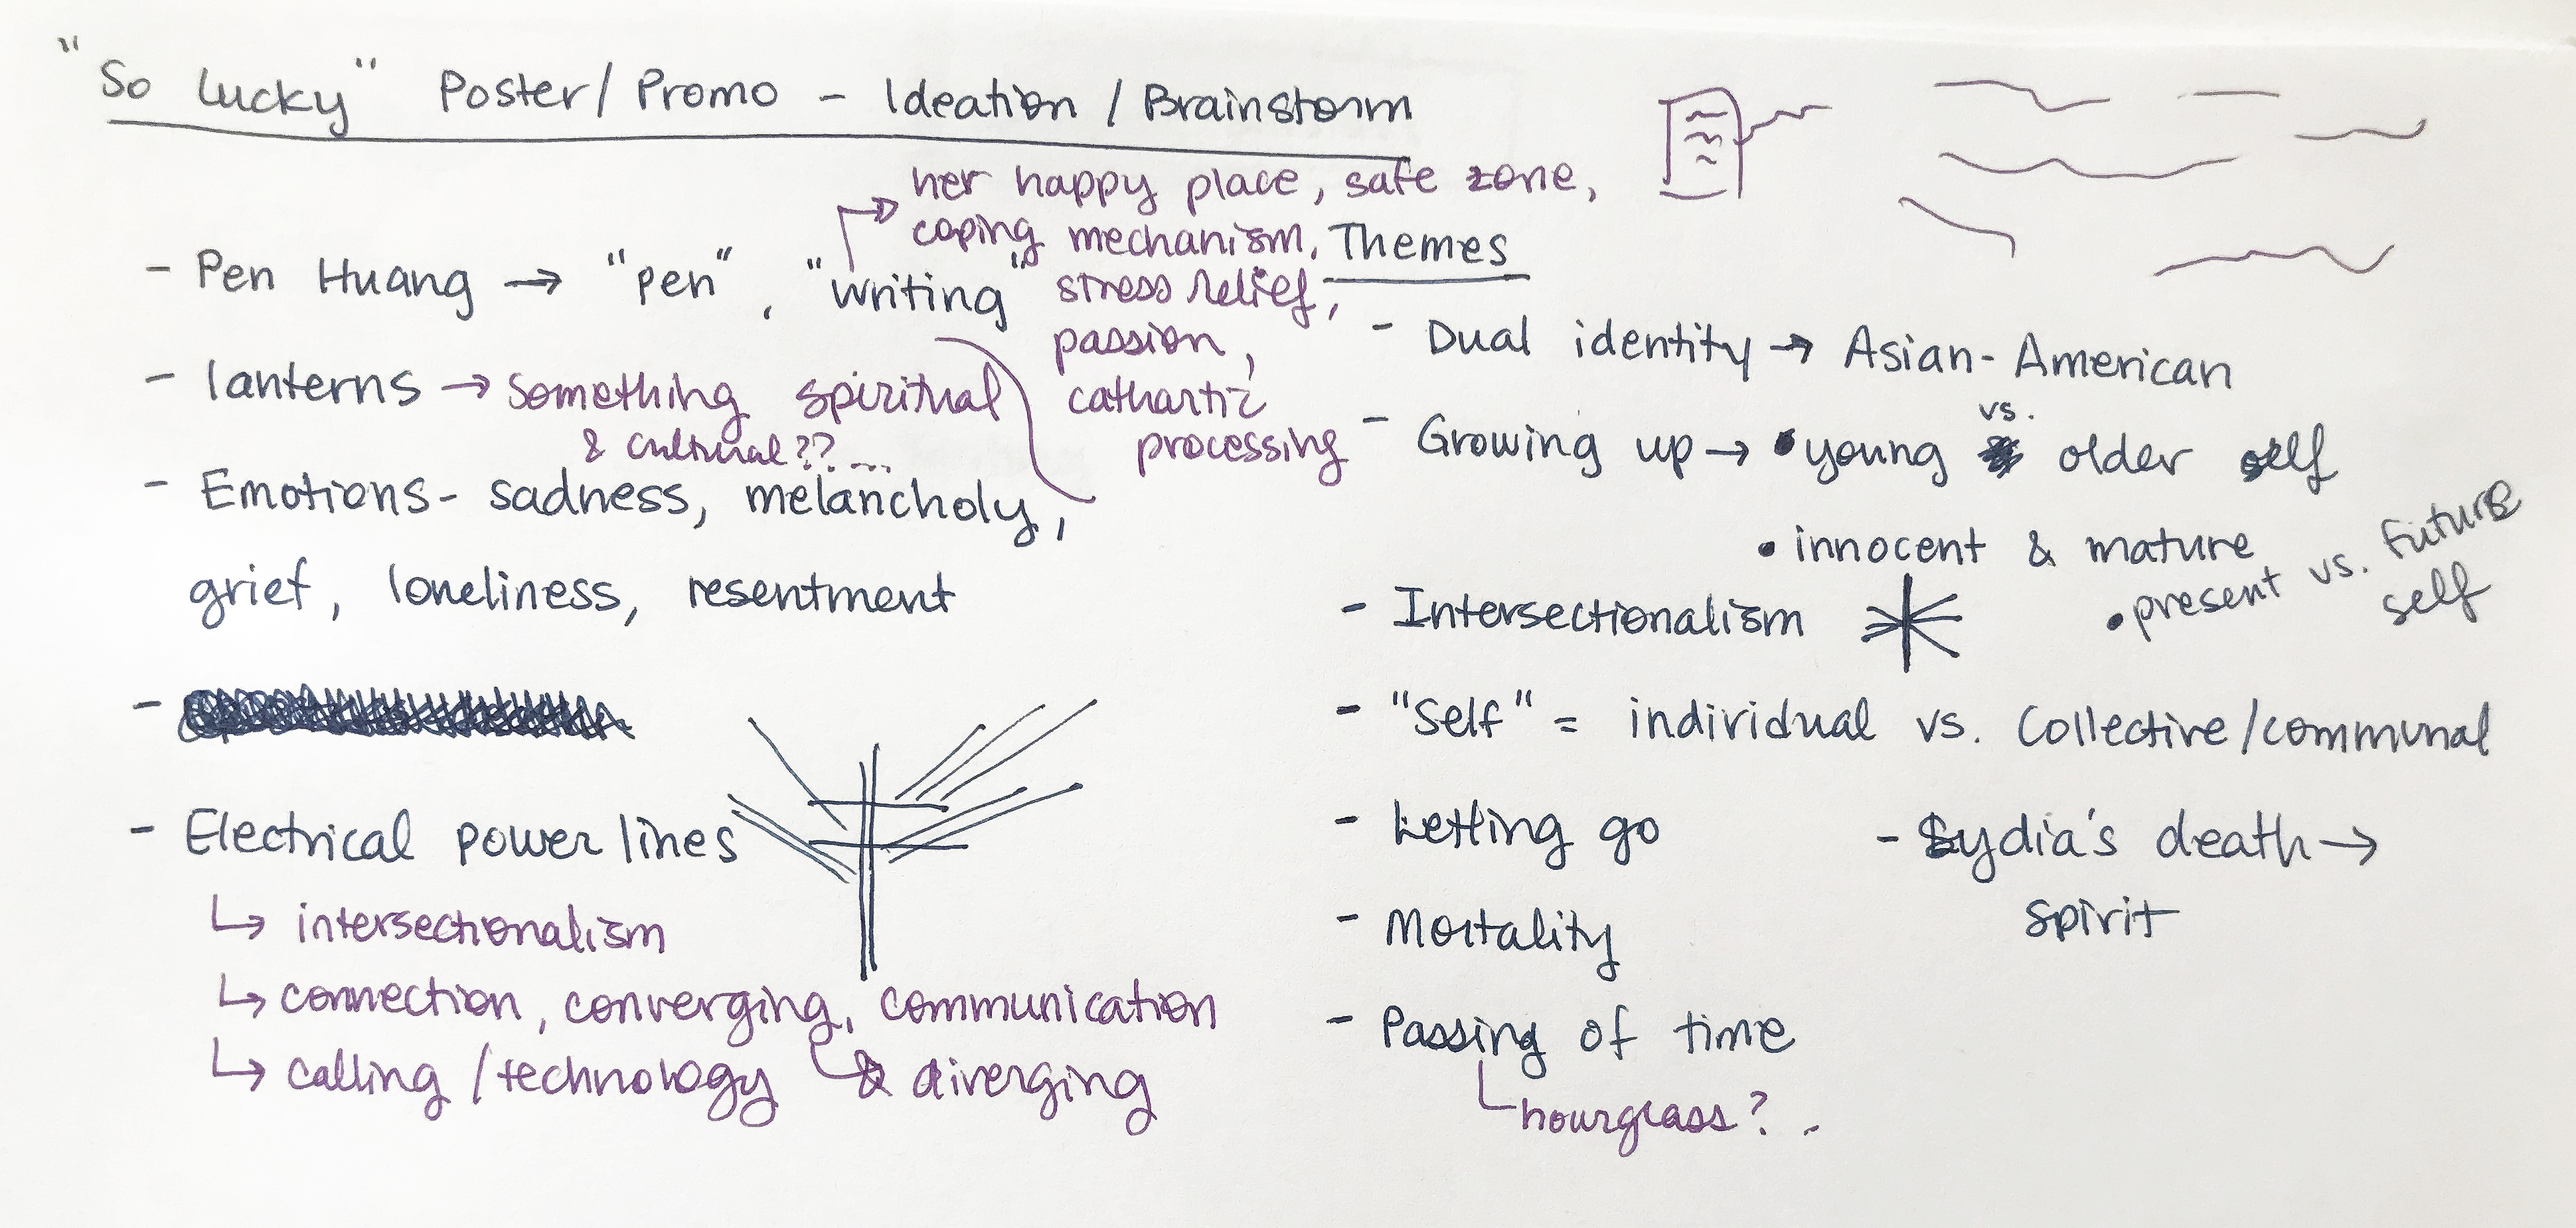 "So Lucky" Poster/Promo - Ideation / Brainstorm
- Pen Huang → "pen", "writing"
her happy place, safe zone,
coping mechanism,
stress relief,
passion,
cathartic
processing
- lanterns → something spiritual
& cultural??...
- Emotions - sadness, melancholy,
grief, loneliness, resentment
-
- Electrical power lines
↳ intersectionalism
↳ connection, converging, communication
↳ & diverging
↳ calling/technology
Themes
- Dual identity → Asian-American
- Growing up → • young vs. older self
• innocent & mature
• present vs. future
self
- Intersectionalism
- "Self" = individual vs. Collective/communal
- Letting go
- Mortality
- Passing of time
hourglass?..
- Sydia's death →
spirit